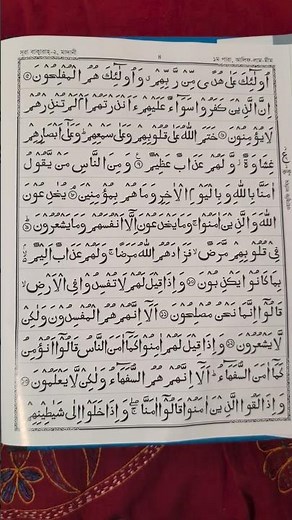 সূরা বাক্বারাহ-২, মাদানী ৪ ১ম পারা, আলিফ-লাম-মীম
اُولٰٓئِكَ عَلٰى هُدًى مِّنْ رَّبِّهِمْ ۙ وَاُولٰٓئِكَ هُمُ الْمُفْلِحُوْنَ ۝٥
اِنَّ الَّذِيْنَ كَفَرُوْا سَوَآءٌ عَلَيْهِمْ ءَاَنْذَرْتَهُمْ اَمْ لَمْ تُنْذِرْهُمْ
لَا يُؤْمِنُوْنَ ۝٦ خَتَمَ اللّٰهُ عَلٰى قُلُوْبِهِمْ وَعَلٰى سَمْعِهِمْ ؕ وَعَلٰٓى اَبْصَارِهِمْ
غِشَاوَةٌ ۫ وَّلَهُمْ عَذَابٌ عَظِيْمٌ ۝٧ وَمِنَ النَّاسِ مَنْ يَّقُوْلُ
اٰمَنَّا بِاللّٰهِ وَبِالْيَوْمِ الْاٰخِرِ وَمَا هُمْ بِمُؤْمِنِيْنَ ۝٨ يُخٰدِعُوْنَ
اللّٰهَ وَالَّذِيْنَ اٰمَنُوْا ۚ وَمَا يَخْدَعُوْنَ اِلَّآ اَنْفُسَهُمْ وَمَا يَشْعُرُوْنَ ۝٩
فِيْ قُلُوْبِهِمْ مَّرَضٌ ۙ فَزَادَهُمُ اللّٰهُ مَرَضًا ۚ وَلَهُمْ عَذَابٌ اَلِيْمٌ ۙ
بِمَا كَانُوْا يَكْذِبُوْنَ ۝١٠ وَاِذَا قِيْلَ لَهُمْ لَا تُفْسِدُوْا فِى الْاَرْضِ ۙ
قَالُوْٓا اِنَّمَا نَحْنُ مُصْلِحُوْنَ ۝١١ اَلَآ اِنَّهُمْ هُمُ الْمُفْسِدُوْنَ وَلٰكِنْ
لَّا يَشْعُرُوْنَ ۝١٢ وَاِذَا قِيْلَ لَهُمْ اٰمِنُوْا كَمَآ اٰمَنَ النَّاسُ قَالُوْٓا اَنُؤْمِنُ
كَمَآ اٰمَنَ السُّفَهَآءُ ؕ اَلَآ اِنَّهُمْ هُمُ السُّفَهَآءُ وَلٰكِنْ لَّا يَعْلَمُوْنَ ۝١٣
وَاِذَا لَقُوا الَّذِيْنَ اٰمَنُوْا قَالُوْٓا اٰمَنَّا ۖ وَاِذَا خَلَوْا اِلٰى شَيٰطِيْنِهِمْ ۙ